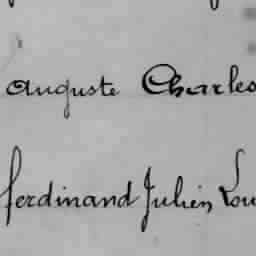 Auguste Charles
ferdinand Julien Lou